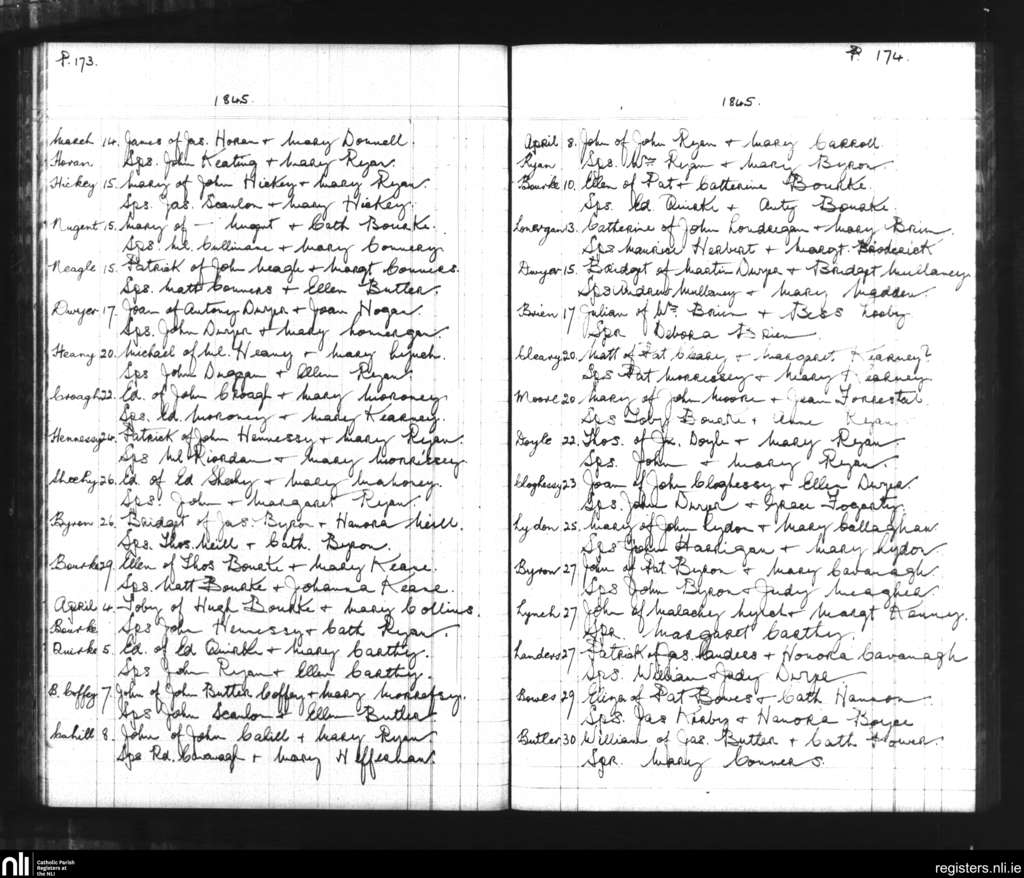 P. 173.
1845.
March 14. James of Jas. Horan + Mary Donnell.
Horan. Sps. John Keating + Mary Ryan.
Hickey 15. Mary of John Hickey + Mary Ryan.
Sps. Jas. Scanlon + Mary Hickey.
Nugent 15. Mary of — Nugent + Cath Bourke.
Sps. Ml. Cullinane + Mary Connery.
Neagle 15. Patrick of John Neagle + Margt Conners.
Sps. Matt Conners + Ellen Butler.
Dwyer 17. Joan of Antony Dwyer + Joan Hogan.
Sps. John Dwyer + Mary Lonergan.
Heany 20. Michael of Ml. Heaney + Mary Lynch.
Sps John Duggan + Ellen Ryan.
Croagh 22. Ed. of John Croagh + Mary Moroney.
Sps. Ed. Moroney + Mary Kearney.
Hennessy 24. Patrick of John Hennessy + Mary Ryan.
Sps Ml Riordan + Mary Morrissey.
Sheehy 26. Ed of Ed Sheehy + Mary Mahoney.
Sps. John + Margaret Ryan.
Byron 26. Bridget of Jas. Byron + Hanora Neill.
Sps. Thos. Neill + Cath. Byron.
Bourke 29. Ellen of Thos Bourke + Mary Keane.
Sps. Matt Bourke + Johanna Keane.
April 4. Toby of Hugh Bourke + Mary Collins.
Bourke. Sps John Hennessy + Cath Ryan.
Quirke 5. Ed. of Ed Quirke + Mary Carthy.
Sps John Ryan + Ellen Carthy.
B. Coffey 7. John of John Butler Coffey + Mary Morrissey.
Sps John Scanlon + Ellen Butler.
Cahill 8. John of John Cahill + Mary Ryan
Sps Rd. Cavanagh + Mary Heffernan.
P. 174.
1845.
April 8. John of John Ryan + Mary Carroll
Ryan Sps. Wm Ryan + Mary Byron.
Bourke 10. Ellen of Pat + Catherine Bourke.
Sps. Ed. Quirke + Anty Bourke.
Lonergan 13. Catherine of John Londergan + Mary Brien.
Sps Maurice Herbert + Margt. Broderick
Dwyer 15. Bridget of Martin Dwyer + Bridget Mullaney.
Sps Andrew Mullaney + Mary Madden.
Brien 17 Julian of Wm Brien + Bess Looby
Spr Debora Brien.
Cleary 20. Matt of Pat Cleary + Margaret Kearney?
Sps Pat Morrissey + Mary Kearney.
Moore 20. Mary of John Moore + Jean Forrestal.
Sps Toby Bourke + Anne Ryan.
Doyle 22. Thos. of Doyle + Mary Ryan.
Sps. John + Mary Ryan.
Cloghessy 23 Joan of John Cloghessy + Ellen Dwyer
Sps. John Dwyer + Grace Fogarty.
Lydon 25. Mary of John Lydon + Mary Callaghan
Sps John Harrigan + Mary Lydon.
Byron 27. John of Pat Byron + Mary Cavanagh.
Sps John Byron + Judy Meagher
Lynch 27 John of Malachey Lynch + Margt Kenney.
Spr. Margaret Carthy.
Landers 27. Patrick of Jas. Landers + Honora Cavanagh
Sps. William + Judy Dwyer
Bowes 29 Eliza of Pat Bowes + Cath Hannon.
Sps. Jas Kirby + Hanora Boyce
Butler 30 William of Jas. Butler + Cath Power.
Spr. Mary Conners.
nli
Catholic Parish
Registers at
the NLI
registers.nli.ie